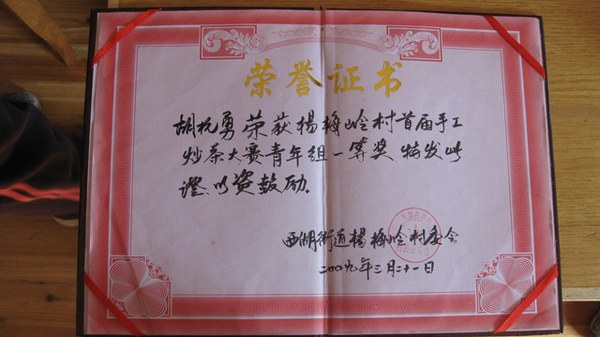 荣誉证书
胡杭勇荣获杨梅岭村首届手工
炒茶大赛青年组一等奖 特发此
证,以资鼓励。
西湖街道杨梅岭村委会
二00九年三月二十一日